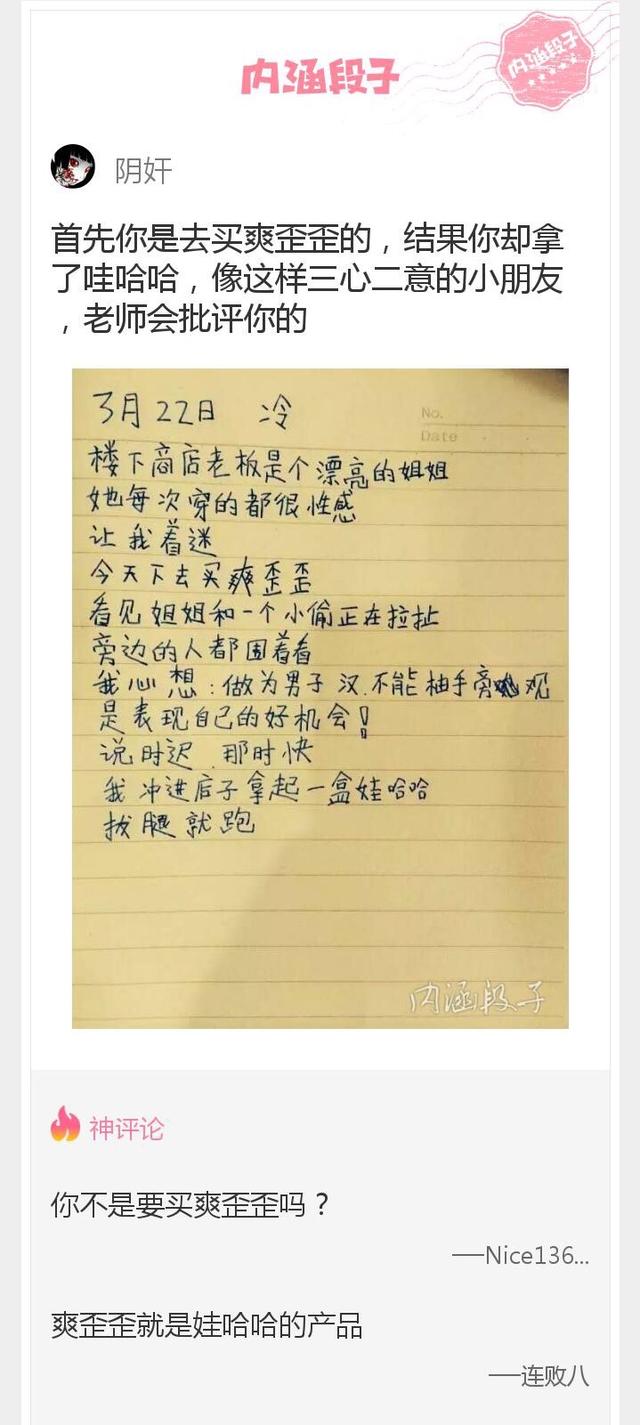 内涵段子
内涵段子
阴奸
首先你是去买爽歪歪的，结果你却拿
了哇哈哈，像这样三心二意的小朋友
，老师会批评你的
3月22日 冷
No.
Date
楼下商店老板是个漂亮的姐姐
她每次穿的都很性感
让我着迷
今天下去买爽歪歪
看见姐姐和一个小偷正在拉扯
旁边的人都围着看
我心想：做为男子汉.不能柚手旁观
是表现自己的好机会！
说时迟.那时快
我冲进店子拿起一盒娃哈哈
拔腿就跑
内涵段子
神评论
你不是要买爽歪歪吗？
──Nice136...
爽歪歪就是娃哈哈的产品
──连败八